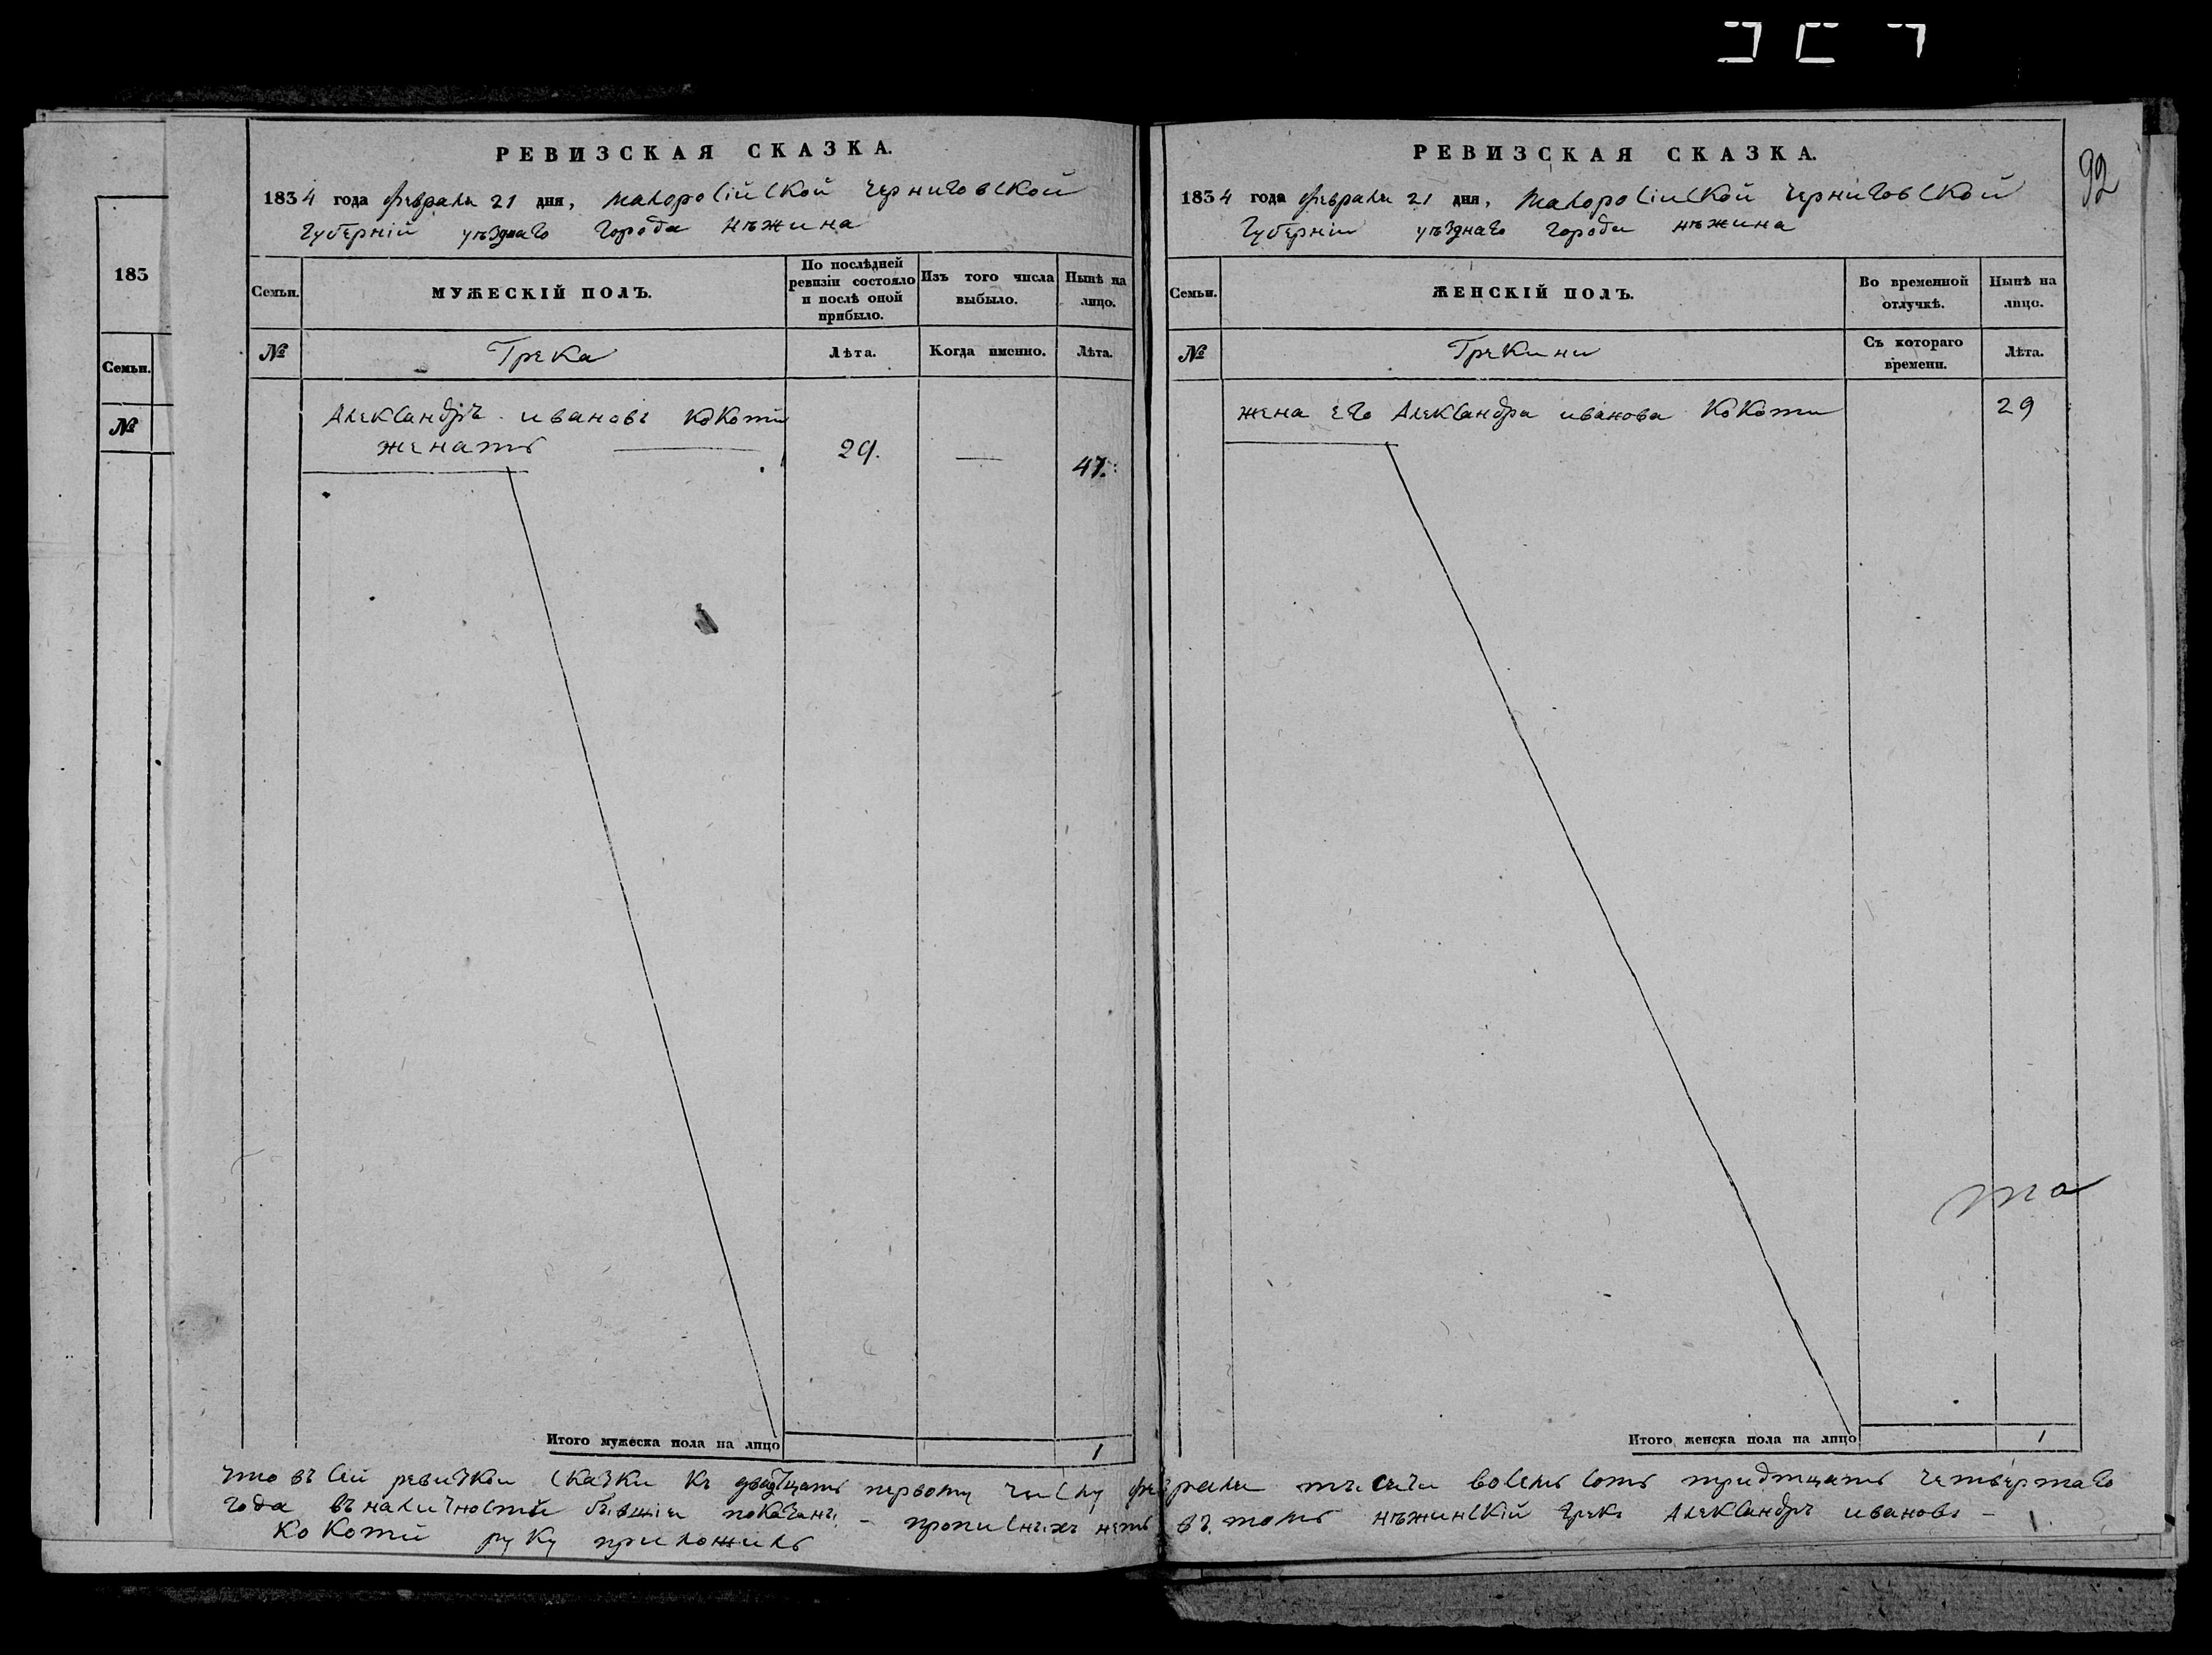 183
Семьи.
№
РЕВИЗСКАЯ СКАЗКА.
1834 года февраля 21 дня, малоросійской черниговской
губерній уѣзднаго города нѣжина
Семьи.
МУЖЕСКІЙ ПОЛЪ.
По послѣдней ревизіи состояло и послѣ оной прибыло.
Изъ того числа выбыло.
Нынѣ на лицо.
№
Грека
Лѣта.
Когда именно.
Лѣта.
Александръ ивановъ кокоти
женатъ
29.
47.
Итого мужеска пола на лицо
1
92
РЕВИЗСКАЯ СКАЗКА.
1834 года февраля 21 дня, малоросіиской черниговской
губерніи уѣзднаго города нѣжина
Семьи.
ЖЕНСКІЙ ПОЛЪ.
Во временной отлучкѣ.
Нынѣ на лицо.
№
Грекини
Съ котораго времени.
Лѣта.
жена его Александра иванова кокоти
29
та
Итого женска пола на лицо
1
что въ сей ревизкои сказки къ двадцать первому числу февраля тысечи восемь сотъ тридтцать четвертаго
года въ наличностй бывшіи показаны - прописныхъ нетъ въ томъ нѣжинскій грекъ Александръ ивановъ -
кокотй руку приложилъ